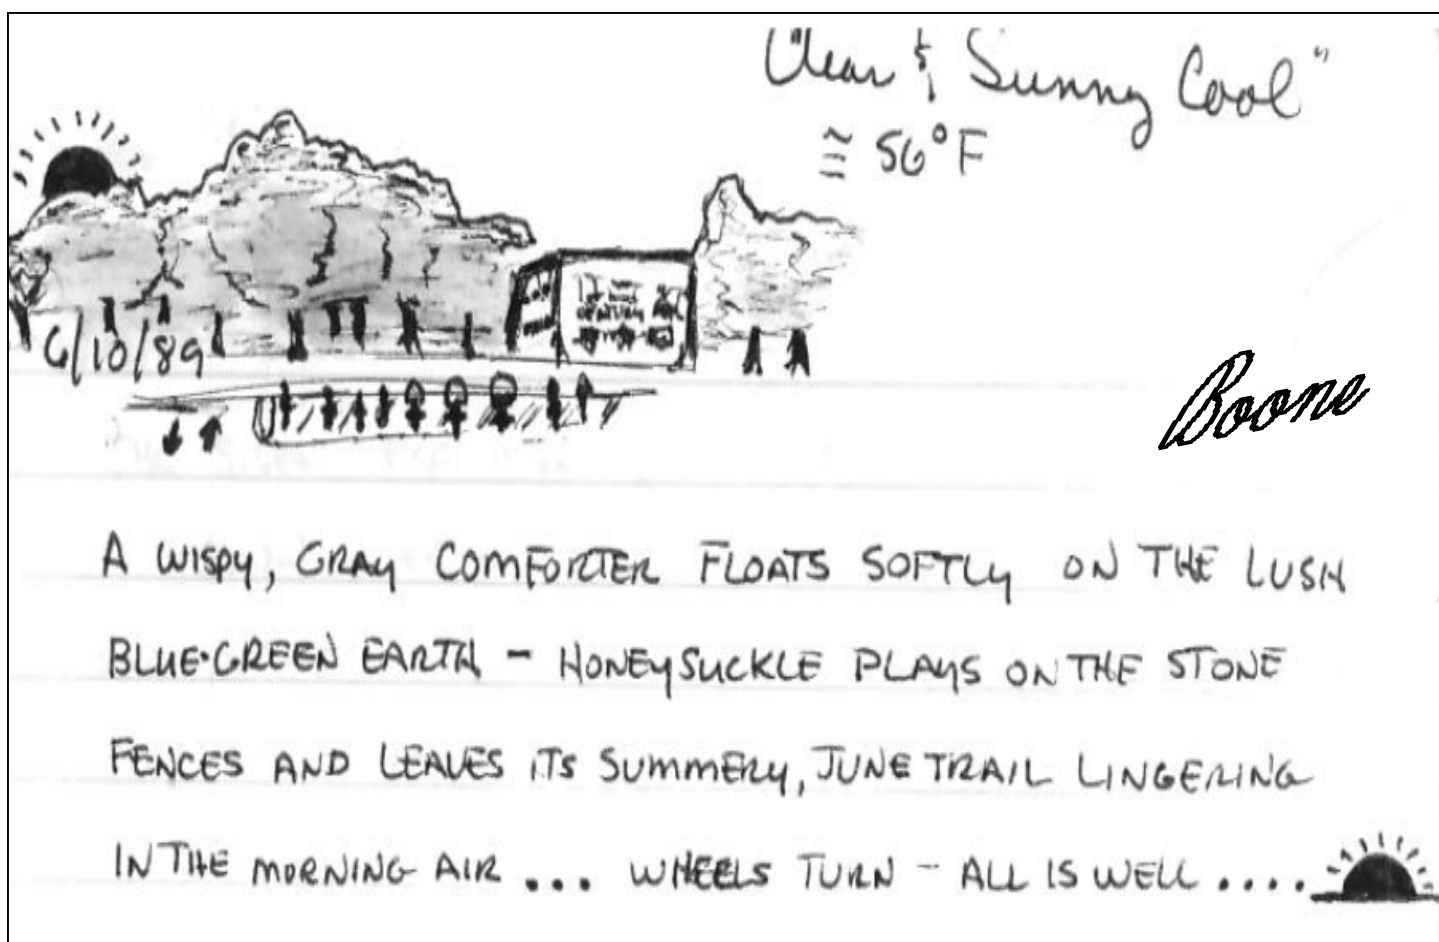 "Clear & Sunny Cool"
≅ 56°F
6/10/89
Boone
A WISPY, GRAY COMFORTER FLOATS SOFTLY ON THE LUSH
BLUE-GREEN EARTH – HONEYSUCKLE PLAYS ON THE STONE
FENCES AND LEAVES ITS SUMMERY, JUNE TRAIL LINGERING
IN THE MORNING AIR ... WHEELS TURN – ALL IS WELL ....